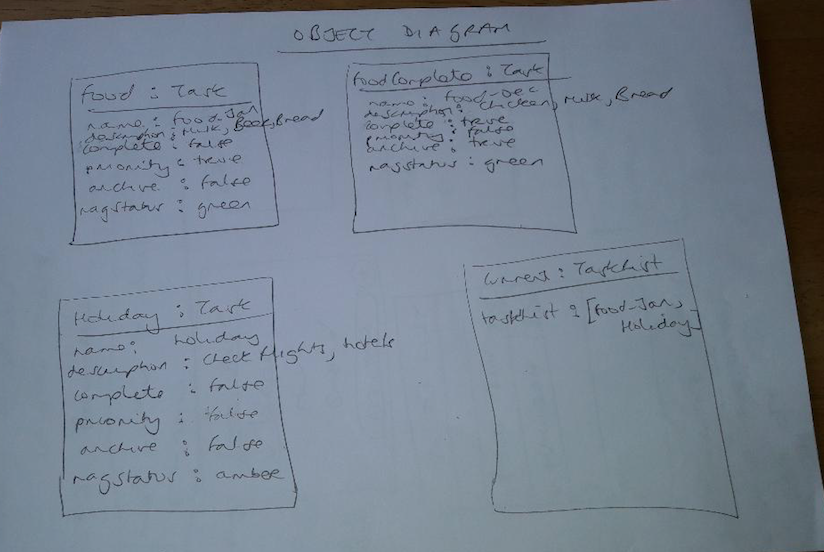 OBJECT DIAGRAM
food : Task
name : food-Jan
description : Milk, Beek, Bread
complete : false
priority : true
archive : false
ragstatus : green
foodComplete : Task
name : food-Dec
description : Chicken, Milk, Bread
complete : true
priority : false
archive : true
ragstatus : green
Holiday : Task
name : holiday
description : check flights, hotels
complete : false
priority : false
archive : false
ragstatus : amber
Current : TaskList
taskList : [food-Jan,
Holiday]